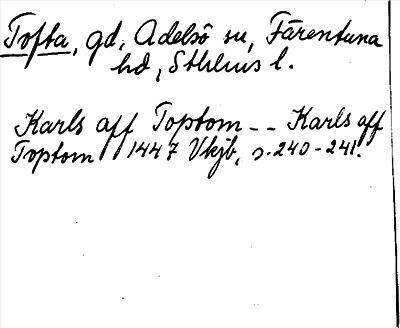 Tofta, gd, Adelsö sn, Färentuna
hd, Sthlms l.
Karls aff Toptom -- Karls aff
Toptom 1447 Vkjb, s. 240-241.